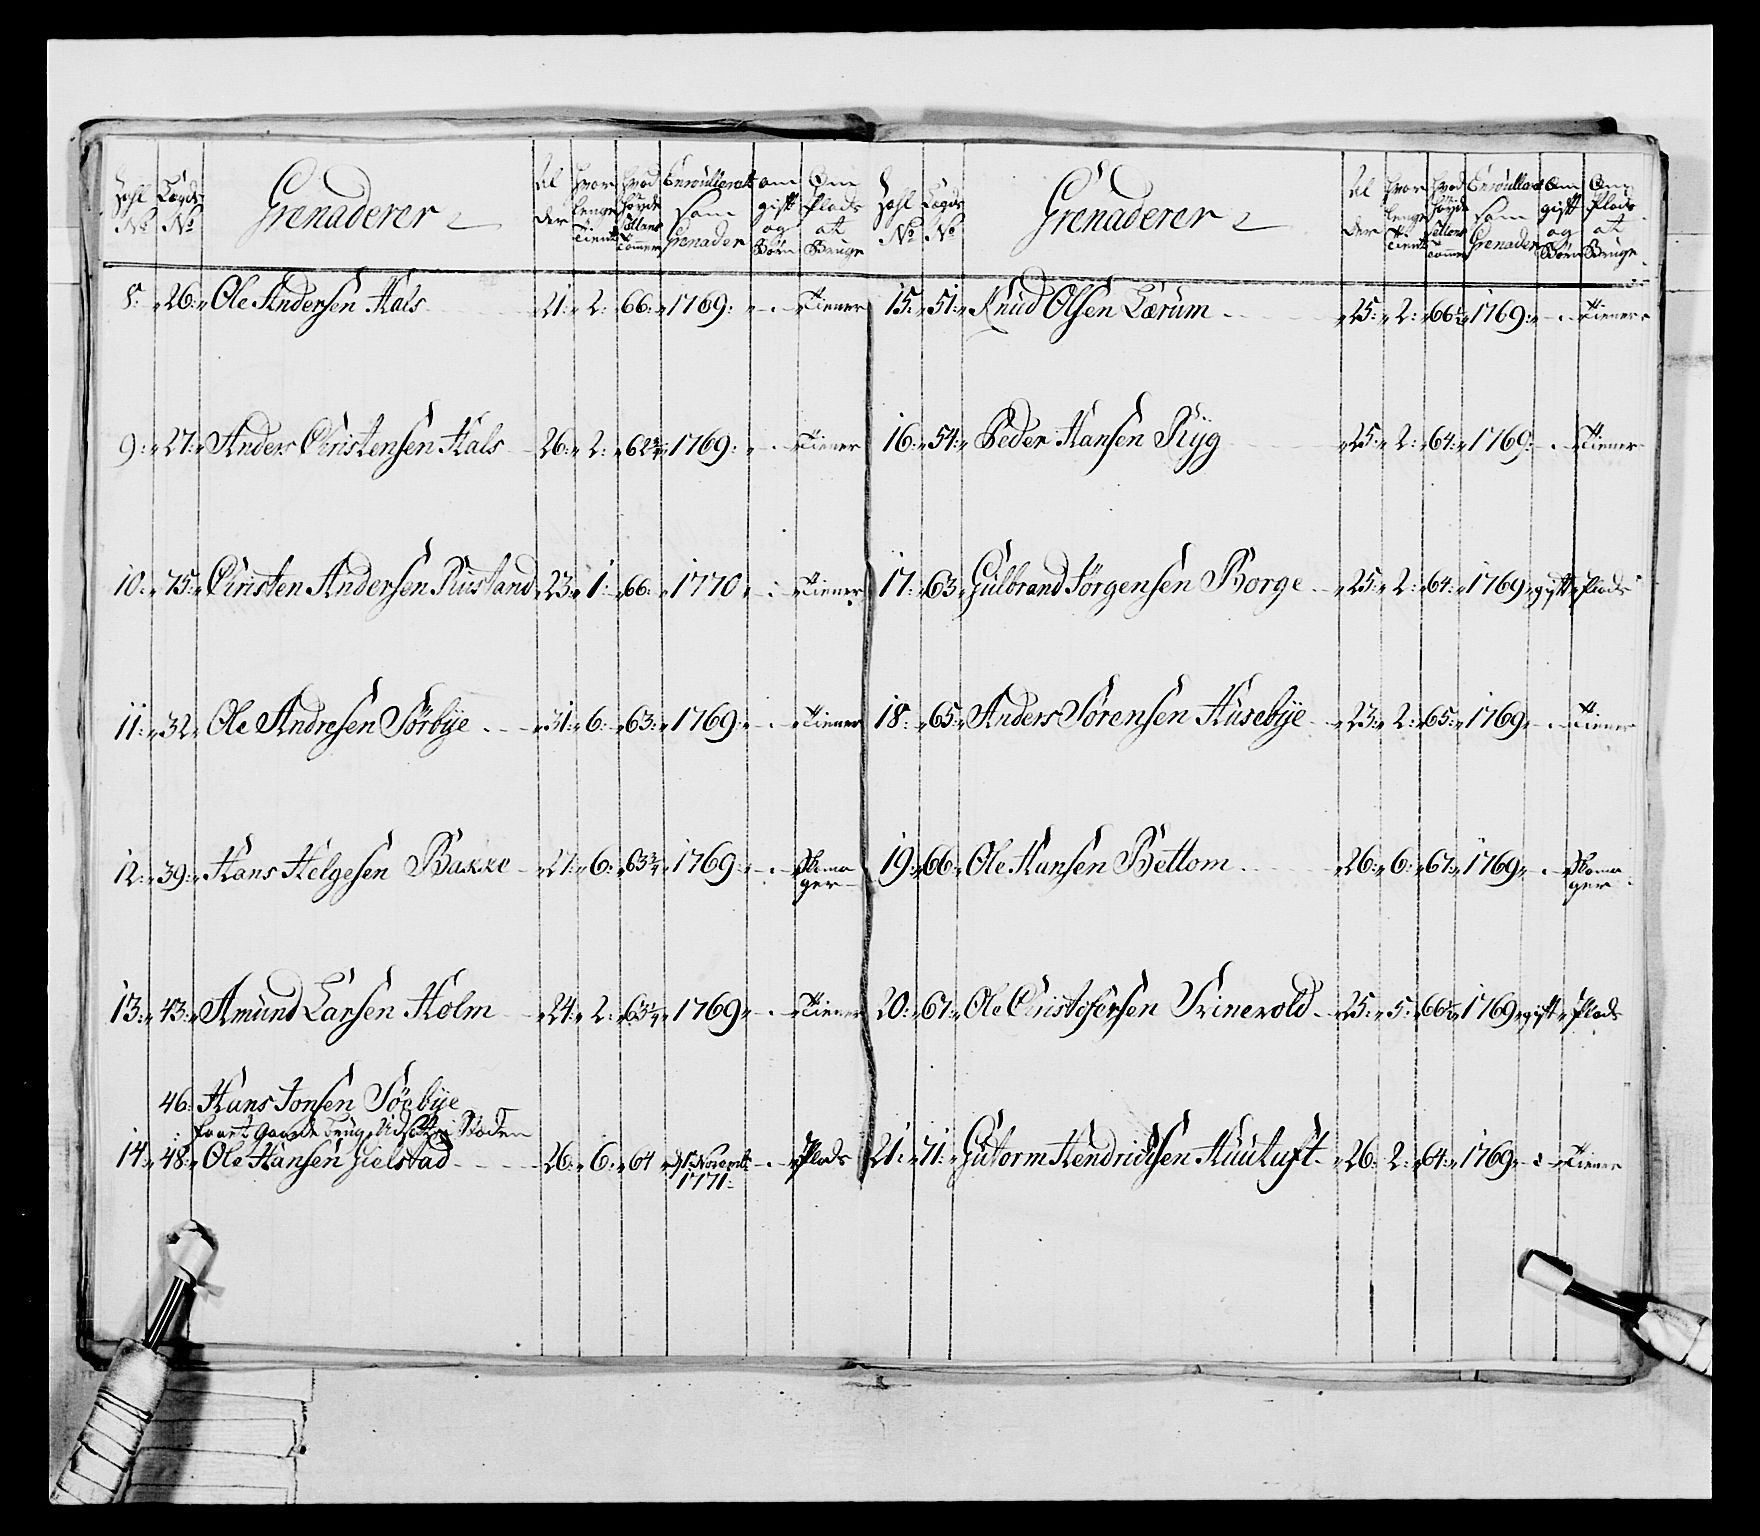 Zahl N° Lægds N° Grenaderer Al der Hvor lenge Tient Hvad Høyde Sællandr Tommer Enroulleret som Grenader om gift og Børn Om Plads at Bruge
8: 26: Ole Andersen Hals 21: 2: 66: 1769: Tiener
9: 27: Anders Christensen Hals 26: 2: 62¾ 1769: Tiener
10: 75: Christen Andersen Rustand 23: 1: 66: 1770 Tiener
11: 32 Ole Andresen Sørbye 31: 6: 63: 1769: Tiener
12: 39: Hans Helgesen Bakke 27: 6: 63¾ 1769: Boma
ger
13: 43: Amund Larsen Holm 24: 2: 63¼ 1769 Tiener
46: Hans Jonsen Sørbye
faaet Gaards brug
14: 48: Ole Hansen Gielstad 26: 6: 64 Novembr Plads
1771:
Zahl N° Lægds N° Grenaderer Al der Hvor lenge Tient Hvad Høyde Sællandr Tommer Enroulleret som Grenader Om gift og Børn Om Plads at Bruge
15: 51: Knud Olsen Lærum 25: 2: 66½ 1769: Tiener
16: 54: Peder Hansen Ryg 25: 2: 64: 1769: Tiener
17: 63 Gulbrand Jørgensen Borge 25: 2: 64: 1769 gift Plads
18: 65: Anders Sørensen Husebye 23: 2: 65: 1769 Tiener
19: 66: Ole Hansen Bettom 26: 6: 67: 1769 Boma
ger
20: 67: Ole Christofersen 25: 5: 66½ 1769 gift Plads
21: 71: Gutorm Hendrichsen Huuluft 26: 2: 64: 1769 Tiener